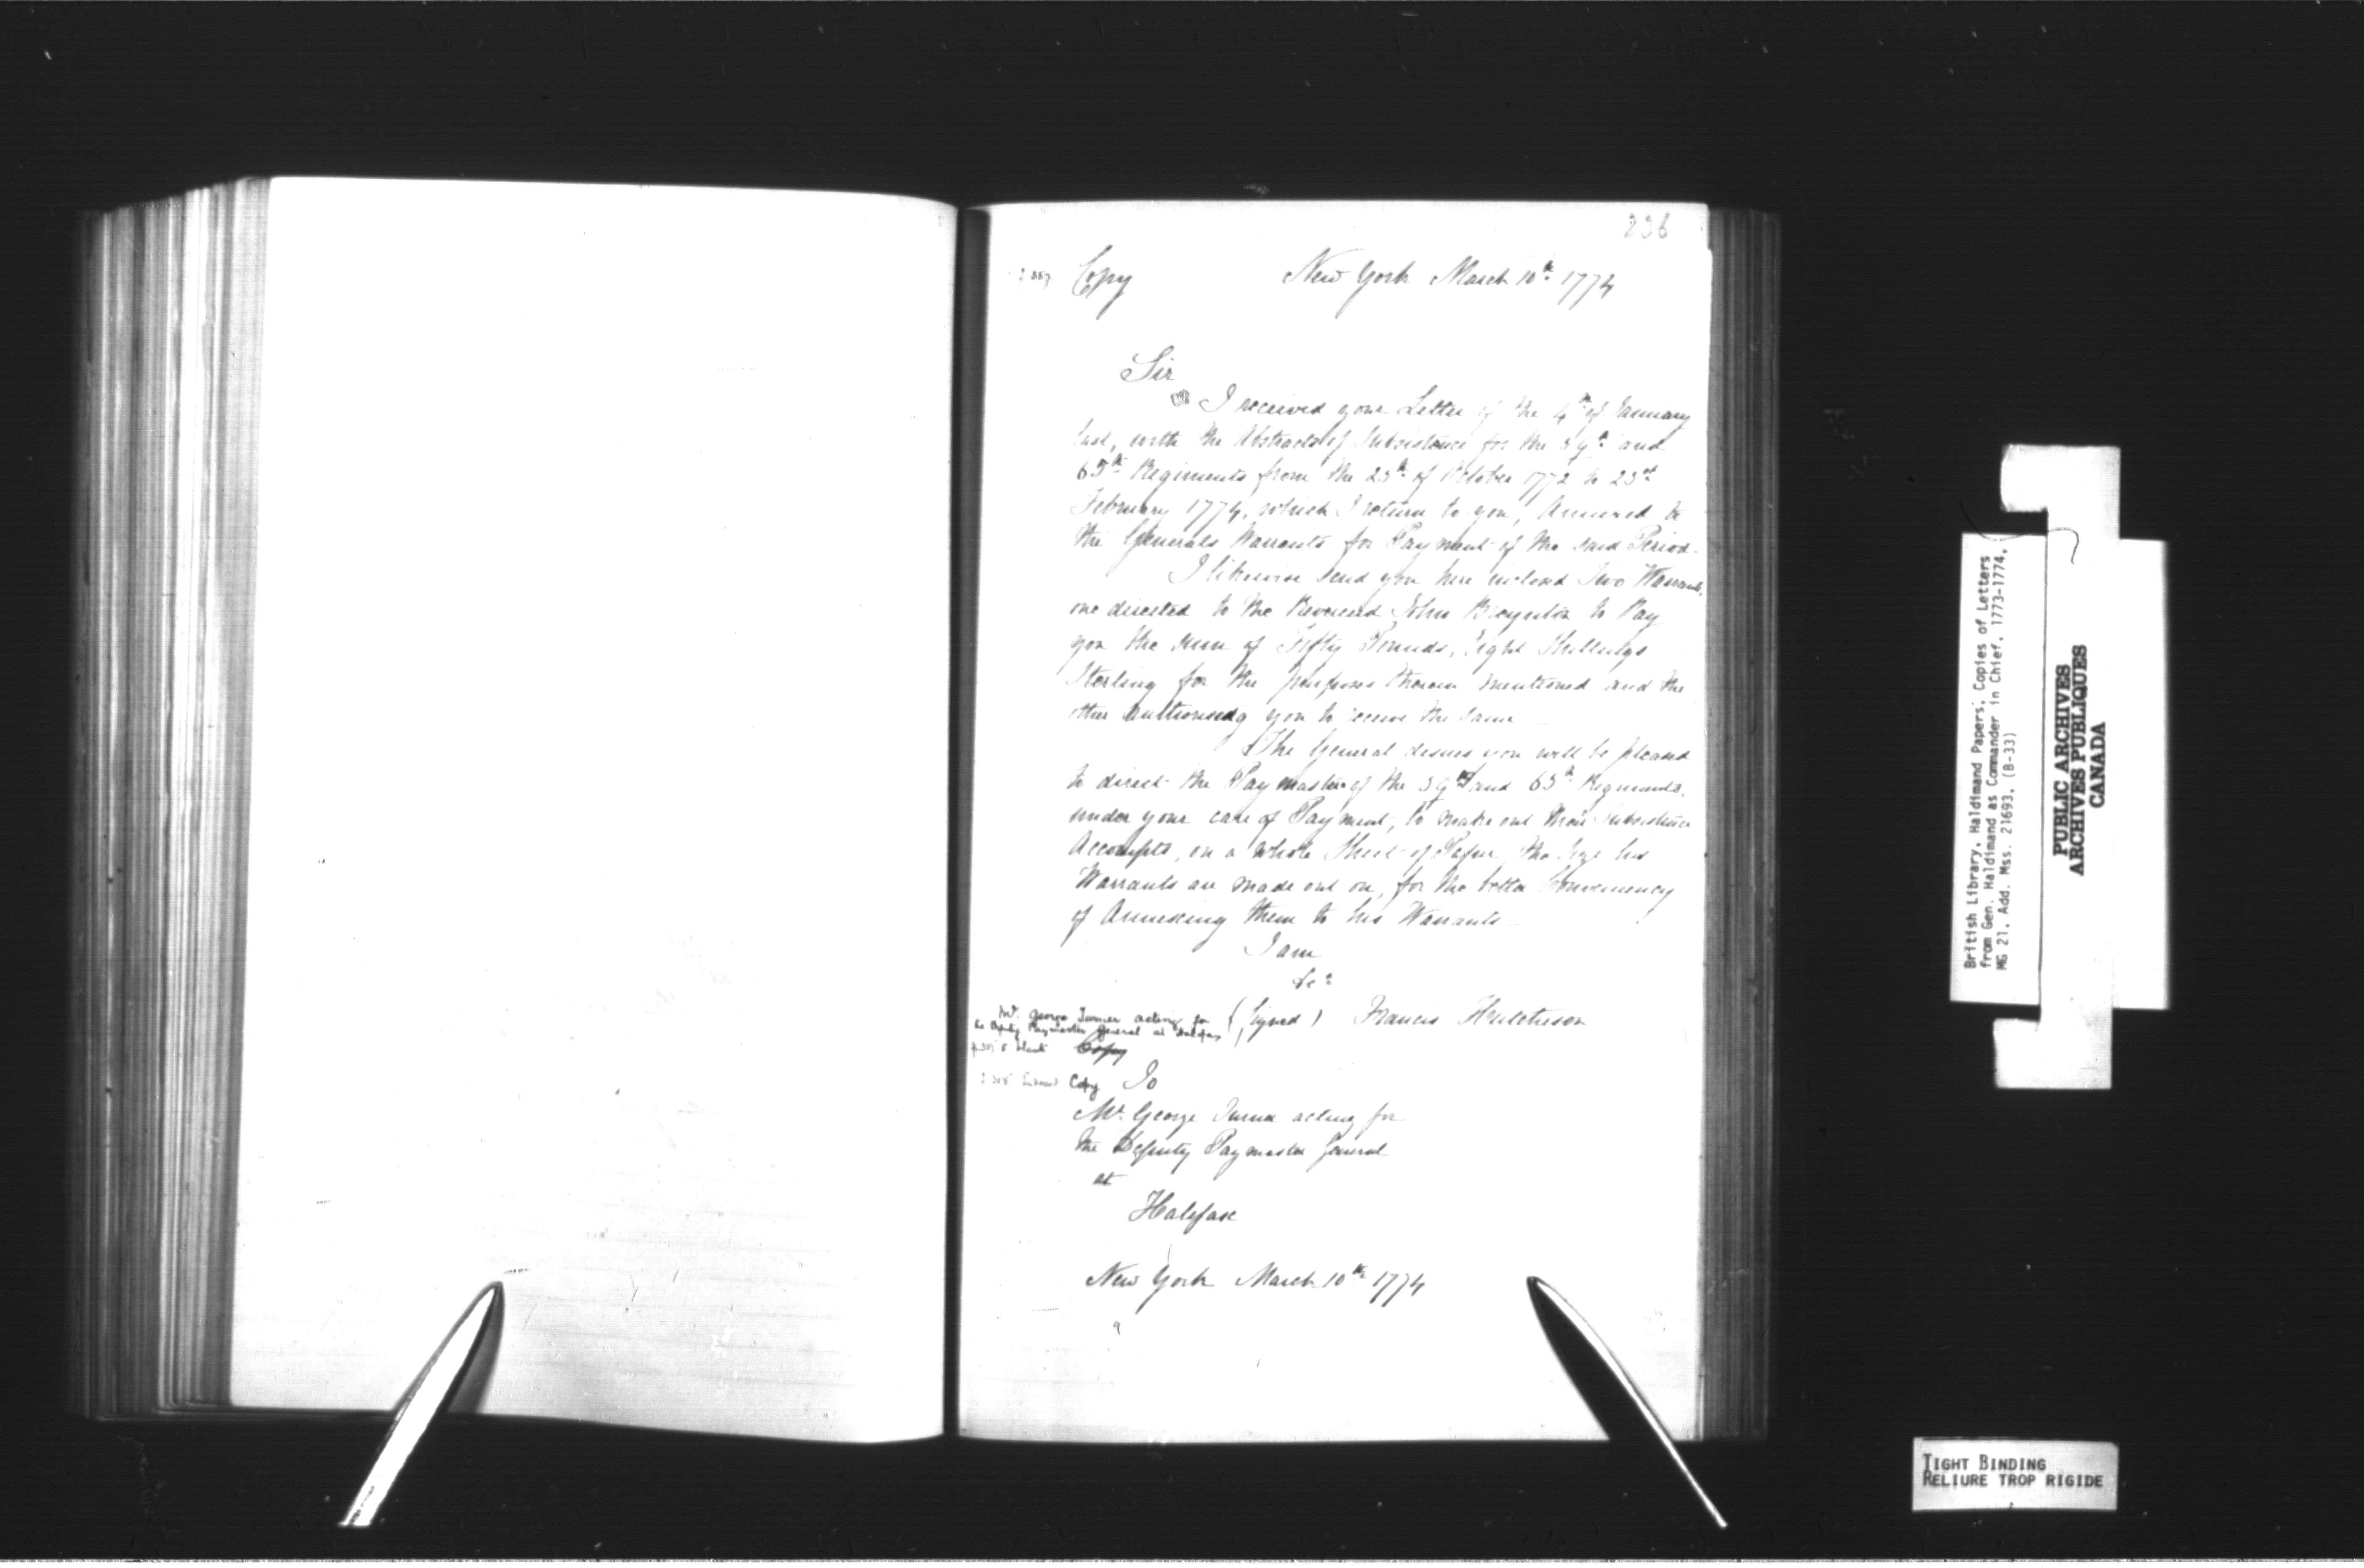 236
Copy New York March 10th 1774
Sir
I received your Letter of the 4th of January
last, with the Abstracts of Subsistence for the 59th and
65th Regiments from the 25th of October 1772 to 23d
February 1774, which I return to you, Annexed to
the Generals Warrants for Payment of the said Period.
I likewise send you here inclosed Two Warrants,
one directed to the Reverend John to Pay
you the sum of Fifty Pounds, Eight Shillings
Sterling for the purposes therein mentioned and the
other authorising you to receive the same
The General desires you will be pleased
to direct the Paymasters of the 59th and 65th Regiments,
under your care of Payment, to make out their Subsistence
Accompts, on a whole Sheet of Paper, the Size his
Warrants are made out on, for the better Conveniency
of Annexing them to his Warrants
I am
&ca
Mr. George Turner acting for (Signed) Francis Hutcheson
the Deputy Paymaster General at Halifax
blank Copy
Copy To
Mr. George Turner acting for
the Deputy Paymaster General
at
Halifax
New York March 10th 1774
9
British Library, Haldimand Papers, Copies of Letters
from Gen. Haldimand as Commander in Chief, 1773-1774,
MG 21, Add. Mss. 21693, (B-33)
PUBLIC ARCHIVES
ARCHIVES PUBLIQUES
CANADA
TIGHT BINDING
RELIURE TROP RIGIDE